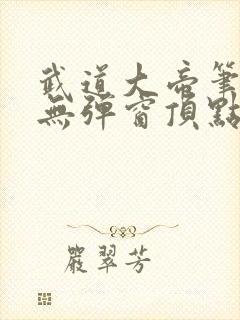 武道大帝筆
無彈窗頂點
嚴翠芳